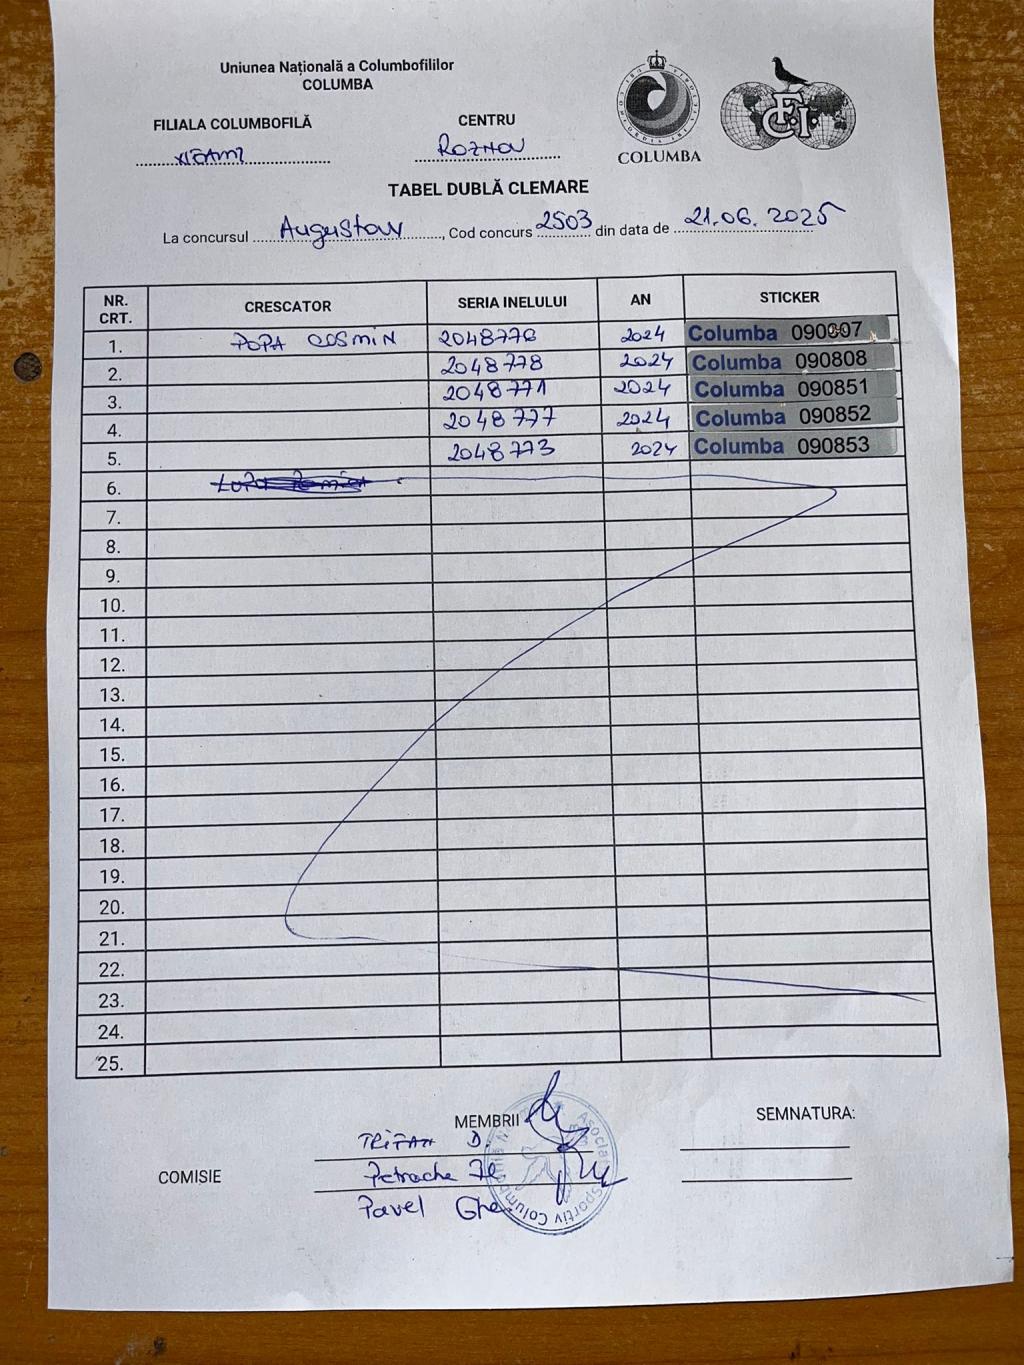 Uniunea Națională a Columbofililor
COLUMBA
FILIALA COLUMBOFILĂ
NEAMT
CENTRU
ROZNOV
COLUMBA
F.C.I.
TABEL DUBLĂ CLEMARE
La concursul Augustow, Cod concurs 2503 din data de 21.06.2025
NR. CRT. CRESCATOR SERIA INELULUI AN STICKER
1. POPA COSMIN 2048776 2024 Columba
2. 2048778 2024 Columba 090808
3. 2048771 2024 Columba 090851
4. 2048777 2024 Columba 090852
5. 2048773 2024 Columba 090853
6.
7.
8.
9.
10.
11.
12.
13.
14.
15.
16.
17.
18.
19.
20.
21.
22.
23.
24.
25.
MEMBRII
SEMNATURA:
COMISIE
TRIFAN D.
Petrache
Pavel Ghe